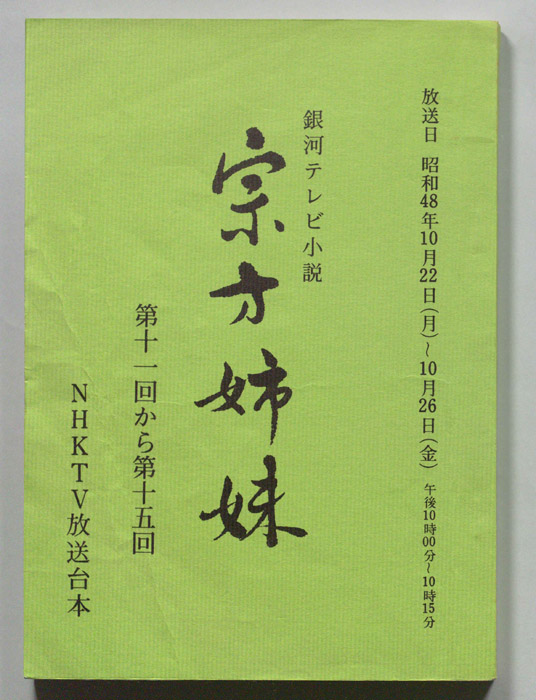 放送日 昭和48年10月22日(月)~10月26日(金) 午後10時00分~10時15分
銀河テレビ小説
宗方姉妹
第十一回から第十五回
NHKTV放送台本